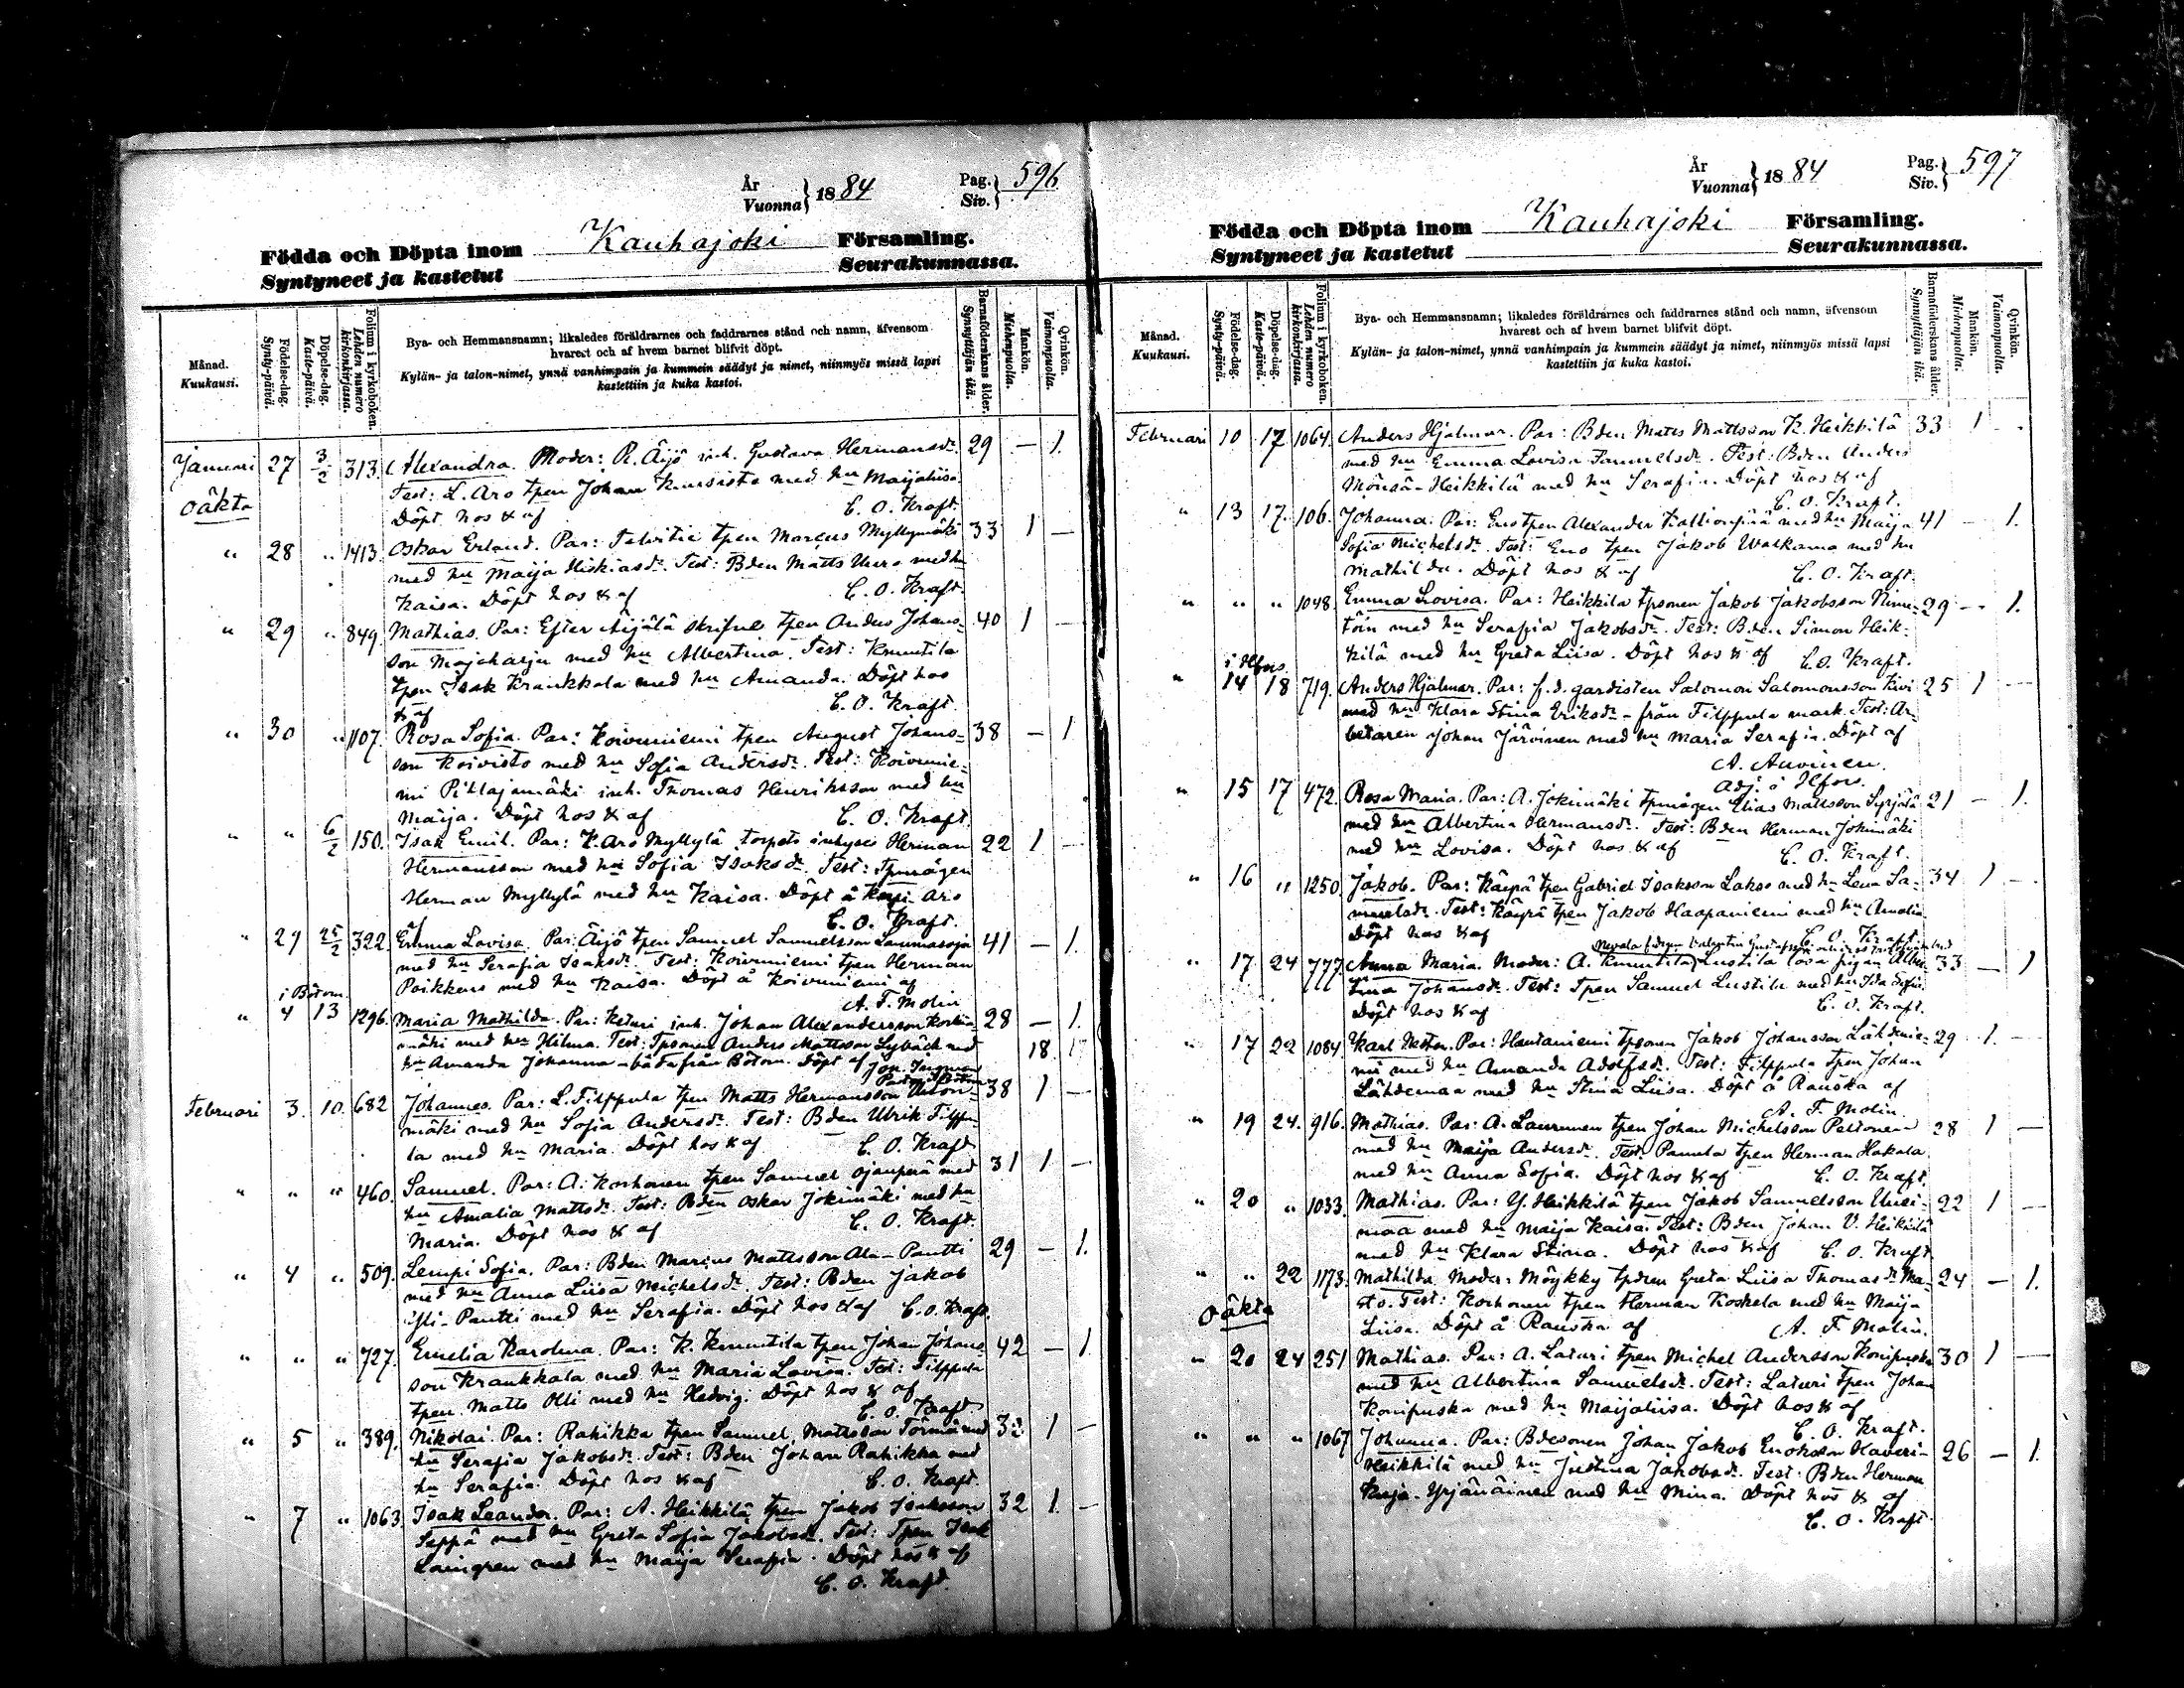 År
Vuonna } 1884
Pag.
Siv. } 596
Födda och Döpta inom Kauhajoki Församling.
Syntyneet ja kastetut Seurakunnassa.
Månad.
Kuukausi.
Födelse-dag.
Synty-päivä.
Döpelse-dag.
Kaste-päivä.
Folium i kyrkoboken.
Lehden numero kirkonkirjassa.
Bya- och Hemmansnamn; likaledes föräldrarnes och faddrarnes stånd och namn, äfvensom
hvarest och af hvem barnet blifvit döpt.
Kylän- ja talon-nimet, ynnä vanhimpain ja kummein säädyt ja nimet, niinmyös missä lapsi
kastettiin ja kuka kastoi.
Barnaföderskans ålder.
Synnyttäjän ikä.
Mankön.
Miehenpuolia.
Qvinkön.
Vaimonpuolia.
Januari 27 3/2 313. Alexandra. Moder: R. Äijö inh. Gustava Hermansdr. 29 — 1.
oäkta Test: L. Aro tpen Johan Kursisto med hu Maijaliisa
Döpt hos & af C. O. Kraft.
" 28 " 1413. Oskar Erland. Par: Telvitie tpen Marcus Myllymäki 33 1 —
med hu Maija Hiskiasdr. Test: Bden Matts Uuro med hu
Kaisa. Döpt hos & af C. O. Kraft.
" 29 " 849. Mathias. Par: Efter Äijälä skrifne tpen Anders Johans- 40 1 —
son Majaharju med hu Albertina. Test: Knuutila
tpen Isak Krankkala med hu Amanda. Döpt hos
& af C. O. Kraft.
" 30 " 1107. Rosa Sofia. Par: Koivuniemi tpen August Johans- 38 — 1
son Koivisto med hu Sofia Andersdr. Test: Koivunie-
mi Pihlajamäki inh. Thomas Henriksson med hu
Maija. Döpt hos & af C. O. Kraft.
" " 6/2 150. Isak Emil. Par: K. Aro Myllylä torpets inhyses Herman 22 1 —
Hermansson med hu Sofia Isaksdr. Test: Tpmågen
Herman Myllylä med hu Kaisa. Döpt å Aro
af C. O. Kraft.
" 29 25/2 322. Emma Lovisa. Par: Äijö tpen Samuel Samuelsson Lammasoja 41 — 1.
med hu Serafia Isaksdr. Test: Koivuniemi tpen Herman
Poikkeus med hu Kaisa. Döpt å Koivuniemi af
A. F. Molin
i Bötom.
" 4 13 1296. Maria Mathilda. Par: Keturi inh. Johan Alexandersson Korkia- 28 — 1.
mäki med hu Hilma. Test: Tpsonen Anders Mattsson Lybäck med 18.
hu Amanda Johanna – båda från Bötom. Döpt af Joh. Ingman
Februari 3. 10. 682 Johannes. Par: L. Filppula tpen Matts Hermansson 38 1 —
mäki med hu Sofia Andersdr. Test: Bden Ulrik Filppu-
la med hu Maria. Döpt hos & af C. O. Kraft
" " " 460. Samuel. Par: A: Korhonen tpen Samuel Ojanperä med 31 1 —
hu Amalia Mattsdr. Test: Bden Oskar Jokimäki med hu
Maria. Döpt hos & af C. O. Kraft.
" 4 " 509. Lempi Sofia. Par: Bden Marius Mattsson Ala-Pantti 29 — 1.
med hu Anna Liisa Michelsdr. Test: Bden Jakob
Yli-Pantti med hu Serafia. Döpt hos & af C. O. Kraft.
" " " 727. Emelia Karolina. Par: K. Knuutila tpen Johan Johans- 42 — 1.
son Krankkala med hu Maria Lovisa. Test: Filppula
tpen Matts Olli med hu Hedvig. Döpt hos & af
C. O. Kraft
" 5 " 389. Nikolai. Par: Rahikka tpen Samuel Mattsson Törmä med 32 1 —
hu Serafia Jakobsdr. Test: Bden Johan Rahikka med
hu Serafia. Döpt hos & af C. O. Kraft.
" 7 " 1063. Isak Leander. Par: A. Heikkilä tpen Jakob Isaksson 32 1. —
Seppä med hu Greta Sofia Jakobsdr. Test: Tpen Isak
med hu Maija Serafia. Döpt hos & af
C. O. Kraft.
År
Vuonna } 1884
Pag.
Siv. } 597
Födda och Döpta inom Kauhajoki Församling.
Syntyneet ja kastetut Seurakunnassa.
Månad.
Kuukausi.
Födelse-dag.
Synty-päivä.
Döpelse-dag.
Kaste-päivä.
Folium i kyrkoboken.
Lehden numero kirkonkirjassa.
Bya- och Hemmansnamn; likaledes föräldrarnes och faddrarnes stånd och namn, äfvensom
hvarest och af hvem barnet blifvit döpt.
Kylän- ja talon-nimet, ynnä vanhimpain ja kummein säädyt ja nimet, niinmyös missä lapsi
kastettiin ja kuka kastoi.
Barnaföderskans ålder.
Synnyttäjän ikä.
Mankön.
Miehenpuolia.
Qvinkön.
Vaimonpuolia.
Februari 10 17 1064. Anders Hjalmar. Par: Bden Matts Mattsson K. Heikkilä 33 1 .
med hu Emma Lovisa Samuelsdr. Test: Bden Anders
Mönsä-Heikkilä med hu Serafia. Döpt hos & af
C. O. Kraft.
" 13 17. 106. Johanna. Par: Eno tpen Alexander Kallionpää med hu Maija 41 — 1.
Sofia Michelsdr. Test: Eno tpen Jakob Walkama med hu
Mathilda. Döpt hos & af C. O. Kraft.
" " " 1048. Emma Lovisa. Par: Heikkilä tpsonen Jakob Jakobsson Nime- 29 — 1.
töin med hu Serafia Jakobsdr. Test: Bden Simon Heik-
kilä med hu Greta Liisa. Döpt hos & af C. O. Kraft.
i Hfors.
" 14 18 719. Anders Hjalmar. Par: f. d. gardisten Salomon Salomonsson Kivi 25 1 —
med hu Klara Stina Eriksdr – från Filppula mark. Test: Ar-
betaren Johan Järvinen med hu Maria Serafia. Döpt af
A. Auvinen.
Adj. i Hfors.
" 15 17 472. Rosa Maria. Par: A. Jokimäki tpmågen Elias Mattsson Syrjälä 21 — 1.
med hu Albertina Hermansdr. Test: Bden Herman Jokimäki
med hu Lovisa. Döpt hos & af C. O. Kraft.
" 16 " 1250. Jakob. Par: Käyrä tpen Gabriel Isaksson Lakso med hu Lena Sa- 34 1 —
muelsdr. Test: Käyrä tpen Jakob Haapaniemi med hu Amalia
Döpt hos & af C. O. Kraft.
" 17. 24 777. Anna Maria. Moder: A. Knuutila Lustila lösa pigan Alber- 33 — 1
tina Johansdr. Test: Tpen Samuel Lustila med hu Ida Sofia.
Döpt hos & af C. O. Kraft.
" 17 22 1084. Karl Nestor. Par: Hautaniemi tpsonen Jakob Johansson Lähdenie- 29 1. —
mi med hu Amanda Adolfsdr. Test: Filppula tpen Johan
Lähdemaa med hu Stina Liisa. Döpt å Rauska af
A. F. Molin.
" 19 24. 916. Mathias. Par: A. Laurunen tpen Johan Michelsson Peltonen 28 1 —
med hu Maija Andersdr. Test: Panula tpen Herman Hakala
med hu Anna Sofia. Döpt hos & af C. O. Kraft.
" 20 " 1033. Mathias. Par: Y. Heikkilä tpen Jakob Samuelsson Uusi- 22 1 —
maa med hu Maija Kaisa. Test: Bden Johan V. Heikkilä
med hu Klara Stina. Döpt hos & af C. O. Kraft
" " 22 1173. Mathilda. Moder: Möykky tpdren Greta Liisa Thomasdr 24 — 1.
oäkta Test: Korhonen tpen Herman Koskela med hu Maija
Liisa. Döpt å Rauska af A. F. Molin.
" 20 24 251 Mathias. Par: A. Laturi tpen Michel Andersson Konipuska 30 1 —
med hu Albertina Samuelsdr. Test: Laturi tpen Johan
Konipuska med hu Maijaliisa. Döpt hos & af
C. O. Kraft.
" " " 1067 Johanna. Par: Bdesonen Johan Jakob Enoksson Havuri- 26 — 1.
Heikkilä med hu Justina Jakobsdr. Test: Bden Herman
Yrjänäinen med hu Mina. Döpt hos & af
C. O. Kraft.